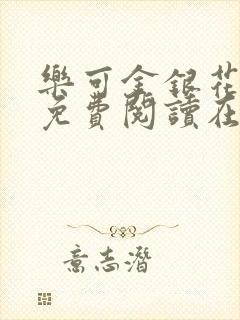 樂可金銀花
免費閱讀在
意志潛